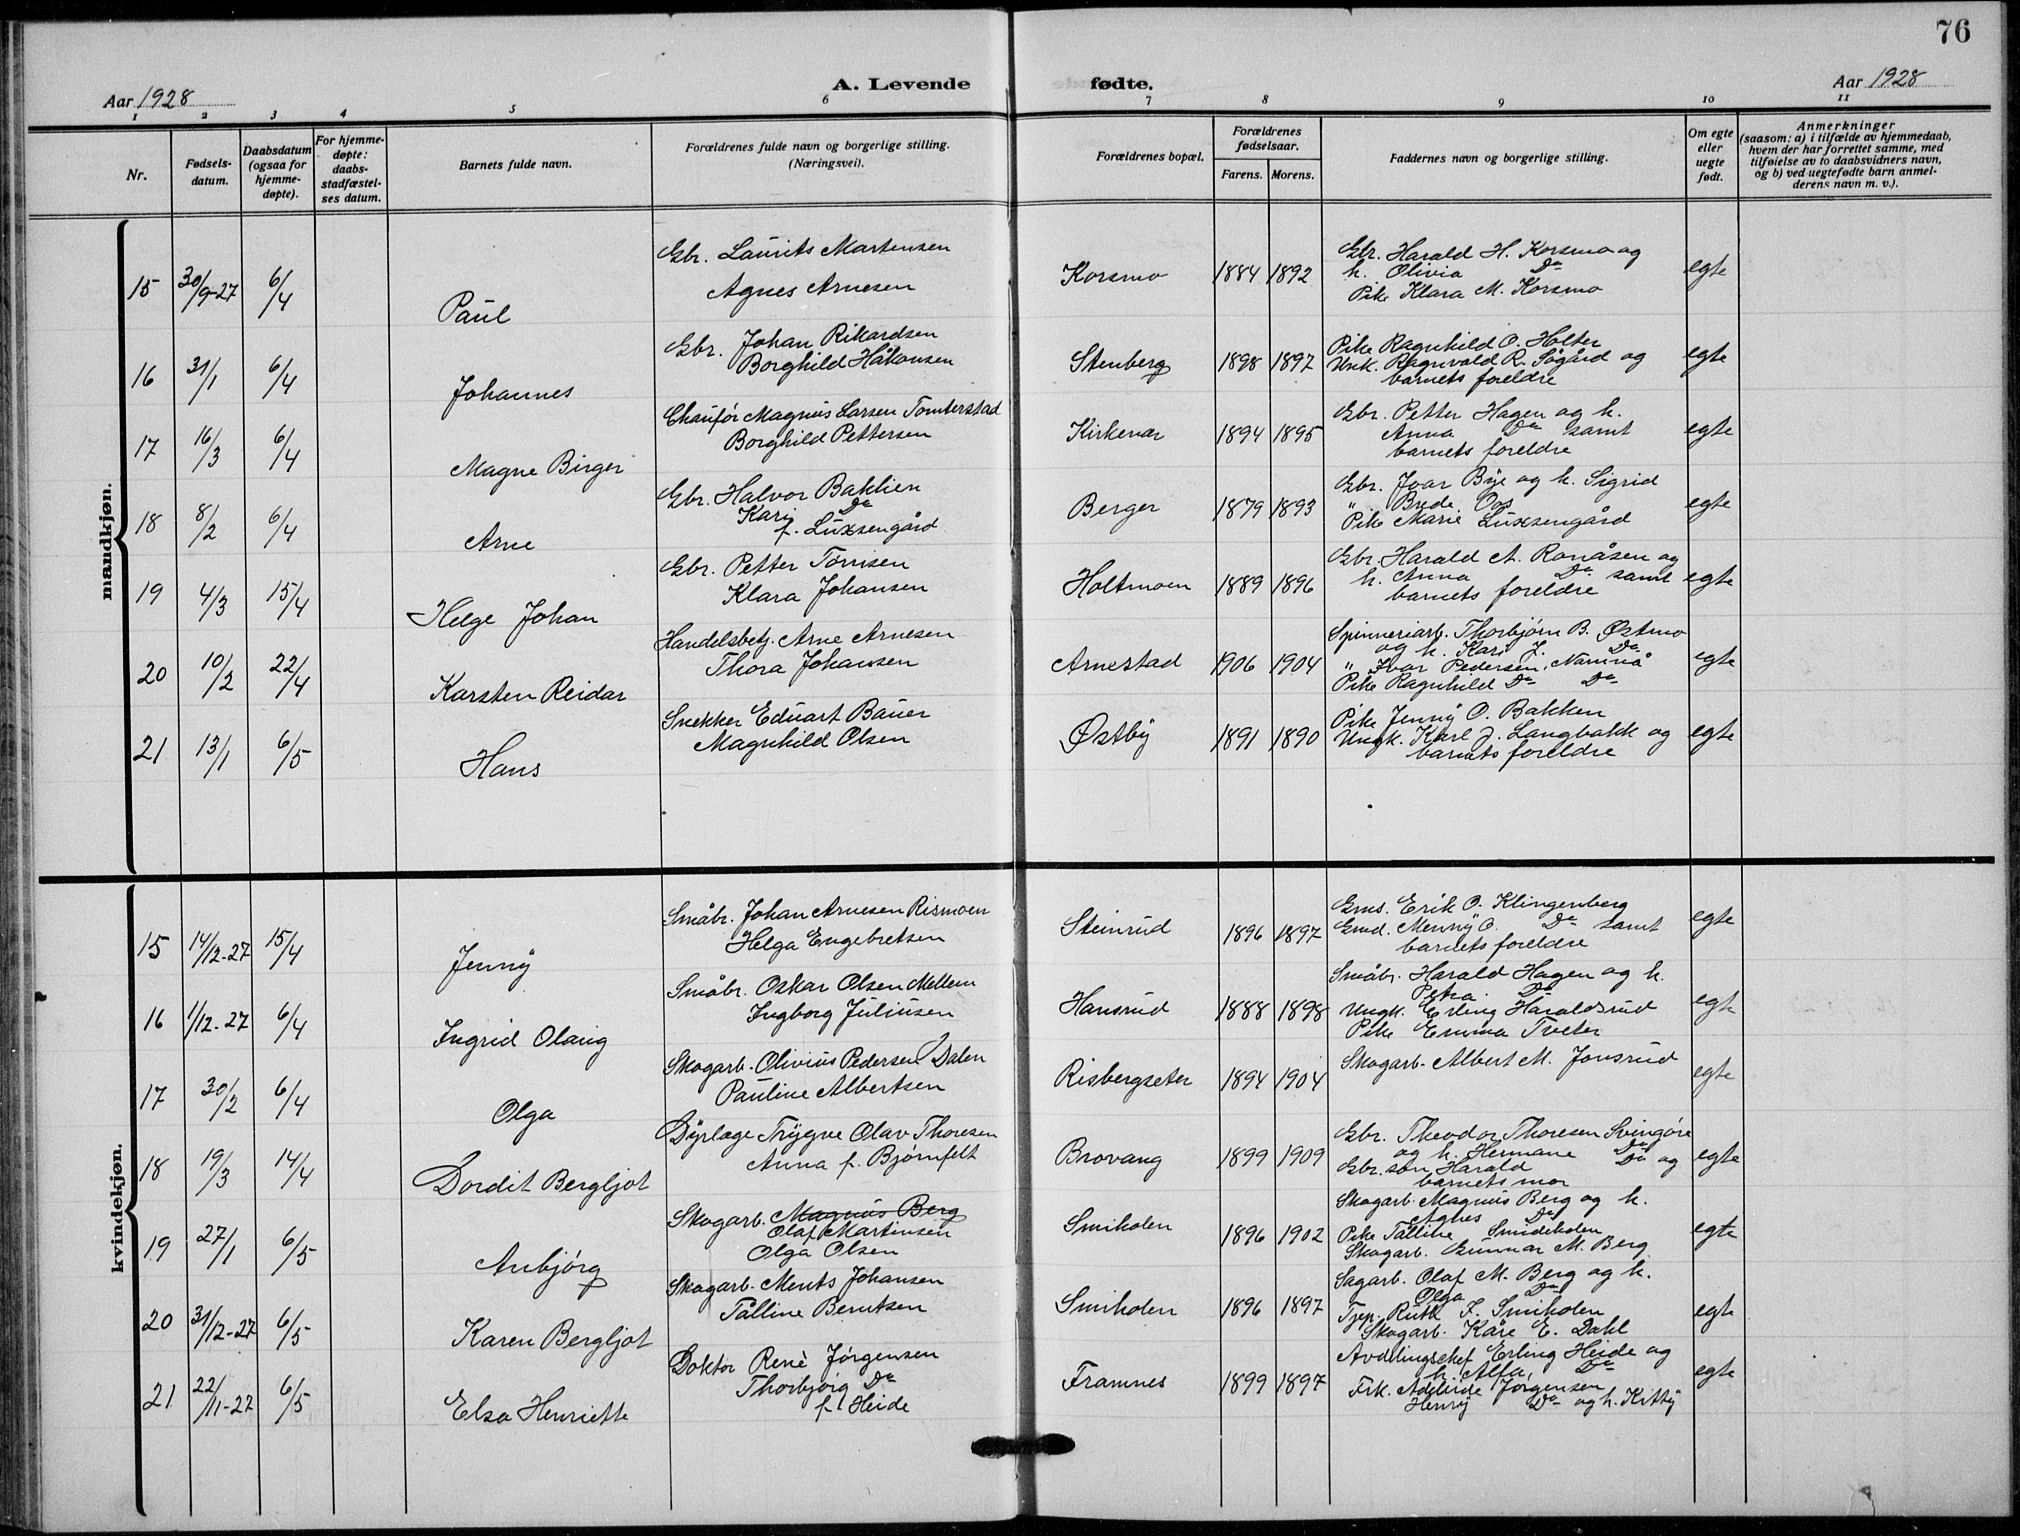 76
Aar 1928
A. Levende
fødte.
Aar 1928
1 2 3 4 5 6 7 8 9 10 11
Nr.
Fødsels-
datum.
Daabsdatum
(ogsaa for
hjemme-
døpte).
For hjemme-
døpte:
daabs-
stadfæstel-
ses datum.
Barnets fulde navn.
Forældrenes fulde navn og borgerlige stilling.
(Næringsvei).
Forældrenes bopæl.
Forældrenes
fødselsaar.
Farens. Morens.
Faddernes navn og borgerlige stilling.
Om egte
eller
uegte
født.
Anmerkninger
(saasom: a) i tilfælde av hjemmedaab,
hvem der har forrettet samme, med
tilføielse av to daabsvidners navn,
og b) ved uegtefødte barn anmel-
derens navn m. v.).
mandkjøn.
15 30/9-27 6/4 Paul
Gbr. Laurits Martensen
Agnes Arnesen
Korsmo 1884 1892
Gbr. Harald H. Korsmo og
h. Olivia Do
Pike Klara M. Korsmo
egte
16 31/1 6/4 Johannes
Gbr. Johan Rikardsen
Borghild Håkonsen
Stenberg 1898 1897
Pike Ragnhild O. Holter
Unk. Ragnvald R. Søgård og
barnets foreldre
egte
17 16/3 6/4 Magne Birger
Chaufør Magnus Larsen Tomterstad
Borghild Pettersen
Kirkenær 1894 1895
Gbr. Petter Hagen og h.
Anna Do samt
barnets foreldre
egte
18 8/2 6/4 Arne
Gbr. Halvor Baklien
Kari Do
f. Luxsengård
Berger 1879 1893
Gbr. Ivar Bye og h. Sigrid
" Brede Oos
Pike Marie Luxsengård
egte
19 4/3 15/4 Helge Johan
Gbr. Petter Tørrisen
Klara Johansen
Holtmoen 1889 1896
Gbr. Harald A. Ronåsen og
h. Anna Do samt
barnets foreldre
egte
20 10/2 22/4 Karsten Reidar
Handelsbetj. Arne Arnesen
Thora Johansen
Arnestad 1906 1904
Spinneriarb. Thorbjørn B. Østmo
og h. Kari J. Do
" Ivar Pedersen, Namnå
Pike Ragnhild Do Do
egte
21 13/1 6/5 Hans
Snekker Eduart Bauer
Magnhild Olsen
Østby 1891 1890
Pike Jenny O. Bakken
Ungk. Karl J. Langbakk og
barnets foreldre
egte
kvindekjøn.
15 14/12-27 15/4 Jenny
Småbr. Johan Arnesen Rismoen
Helga Engebretsen
Steinrud 1896 1897
Gms. Erik O. Klingenberg
Gmd. Menny O. Do samt
barnets foreldre
egte
16 1/12-27 6/4 Ingrid Olaug
Småbr. Oskar Olsen Mellem
Ingborg Juliusen
Hansrud 1888 1898
Småbr. Harald Hagen og h.
Petra Do
Ungk. Erling Haraldsrud
Pike Emma Tveter
egte
17 30/2 6/4 Olga
Skogarb. Olivius Pedersen Dalen
Pauline Albertsen
Risbergseter 1894 1904
Skogarb. Albert M. Jonsrud
egte
18 19/3 14/4 Dordit Bergljot
Dyrlæge Trygve Olav Thoresen
Anna f. Bjørnfelt
Brovang 1899 1909
Gbr. Theodor Thoresen Svingøre
og h. Hermane Do
Gbr. søn Harald Do og
barnets mor
egte
19 27/1 6/5 Anbjørg
Skogarb. Magnus Berg
Olaf Martinsen
Olga Olsen
Smiholen 1896 1902
Skogarb. Magnus Berg og h.
Agnes Do
Pike Talline Smideholen
Skogarb. Gunnar M. Berg
egte
20 31/12-27 6/5 Karen Bergljot
Skogarb. Ments Johansen
Talline Berntsen
Smiholen 1896 1897
Sagarb. Olaf M. Berg og h.
Olga Do
Tjep. Ruth I. Smiholen
Skogarb. Kåre E. Dahl
egte
21 22/11-27 6/5 Elsa Henriette
Doktor Renè Jørgensen
Thorbjørg Do
f. Heide
Framnes 1899 1897
Avdelingschef Erling Heide og
h. Alfa Do
Frk. Adelheide Jørgensen
Henry Do og h. Kitty
egte